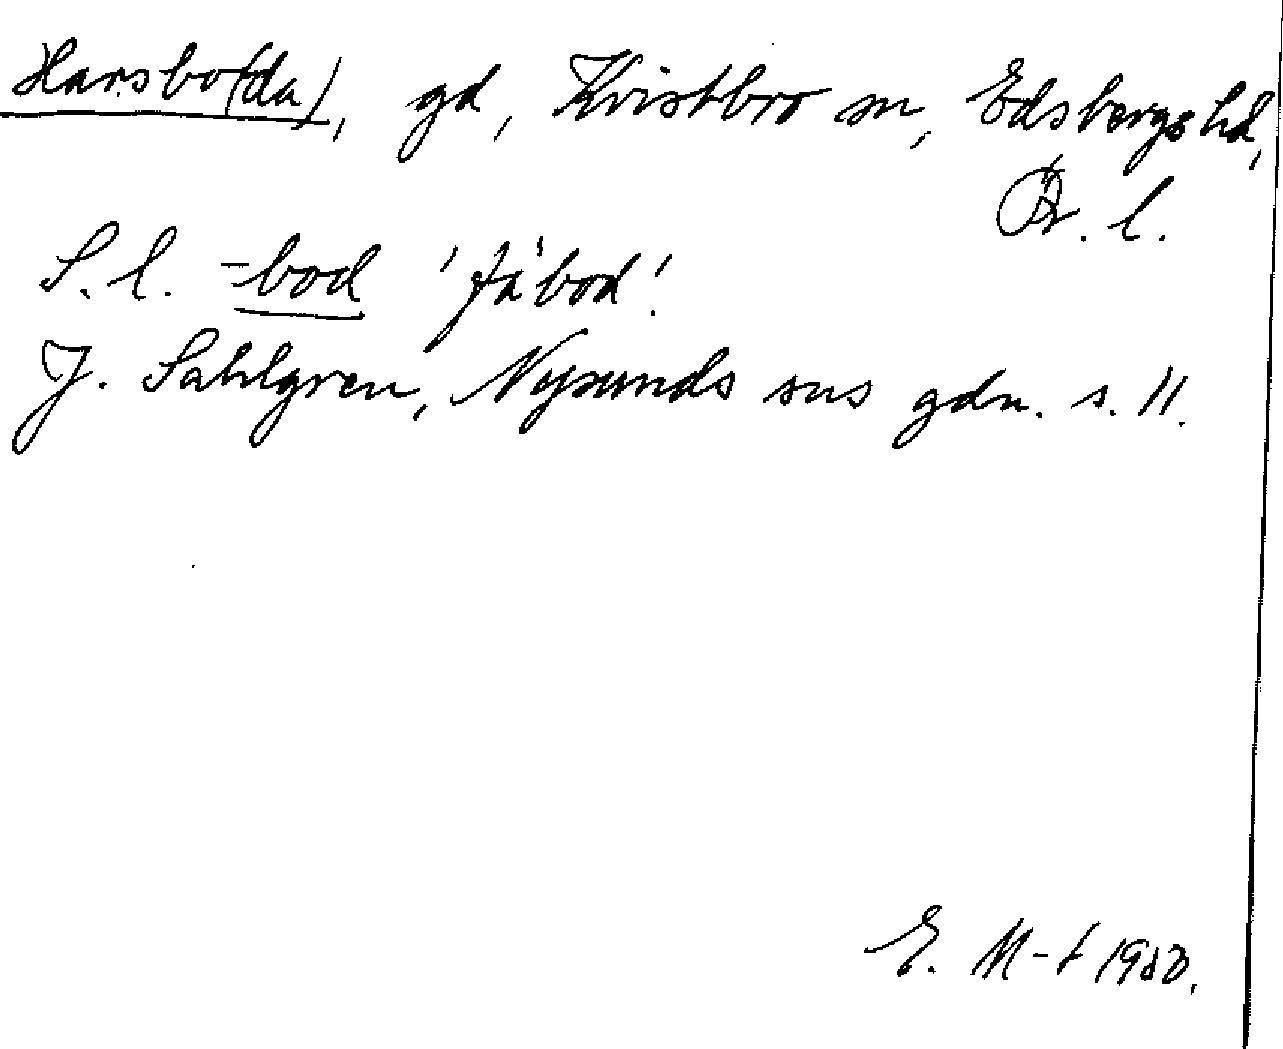 Harsbo(da), gd, Kvistbro sn, Edsbergs hd,
Ör. l.
S. l. -bod 'fäbod'.
J. Sahlgren, Nysunds sns gdn. s. 11.
E. M-t